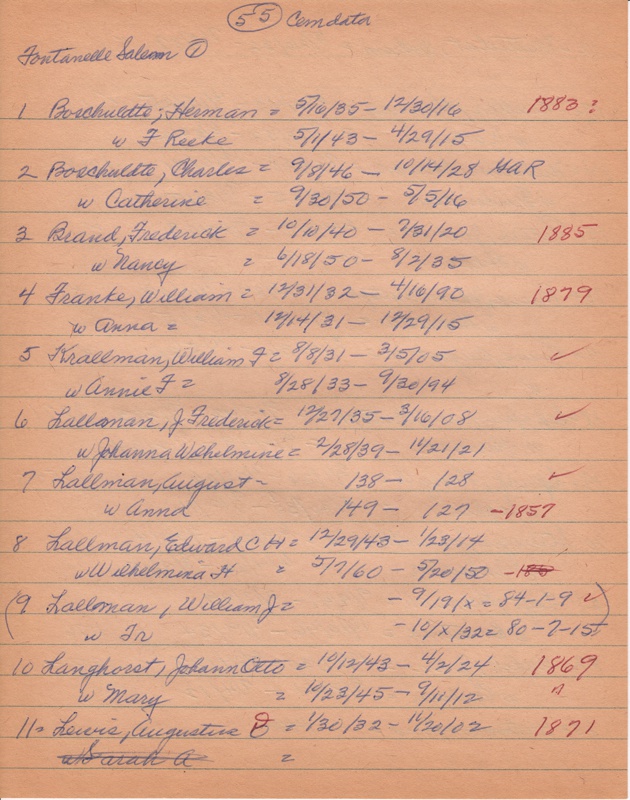 55 Cemdata
Fontanelle Salem 1
1 Boschuldte, Herman = 5/16/35 - 12/30/16 1883 ?
w F Reeke 5/1/43 - 4/29/15
2 Boschuldte, Charles = 9/8/46 - 10/14/28 GAR
w Catherine = 9/30/50 - 5/5/16
3 Brand, Frederick = 10/10/40 - 7/31/20 1885
w Nancy = 6/18/50 - 8/2/35
4 Franke, William = 12/31/32 - 4/16/90 1879
w Anna = 12/14/31 - 12/29/15
5 Krallman, William F = 8/8/31 - 3/5/05 ✓
w Annie F = 8/28/33 - 9/30/94
6 Lalloman, J. Frederick = 12/27/35 - 3/16/08 ✓
w Johanna Wilhelmine = 2/28/39 - 11/21/21
7 Lallman, August - 138 - 128 ✓
w Anna 149 - 127 - 1857
8 Lallman, Edward C H = 12/29/43 - 1/23/14
w Wilhelmina H = 5/7/60 - 5/20/50 -
(9 Lalloman, William J = - 9/19/x = 84-1-9 ✓)
w Fr - 10/x/32 = 80-7-15
10 Langhorst, Johann Otto = 10/12/43 - 4/2/24 1869
w Mary = 10/23/45 - 9/11/12 "
11 Lewis, Augustus = 1/30/32 - 11/20/02 1871
w Sarah A =